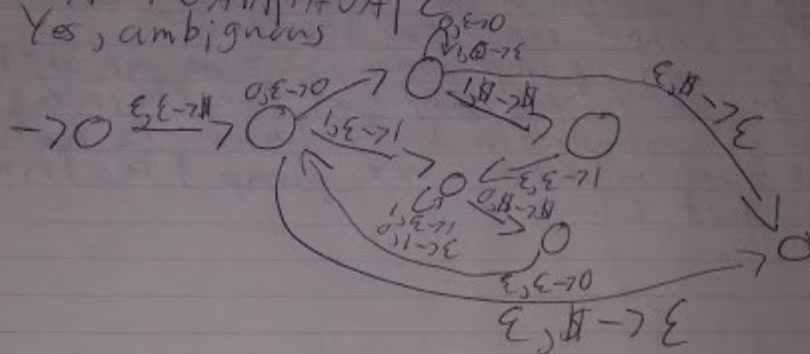 Yes, ambignuous
0,ε->0
1,0->ε
ε,ε->$
0,ε->0
1,$->$
ε,$->ε
1,ε->1
ε,ε->1
0,$->$
1,ε->1
0,1->ε
ε,ε->0
ε,$->ε